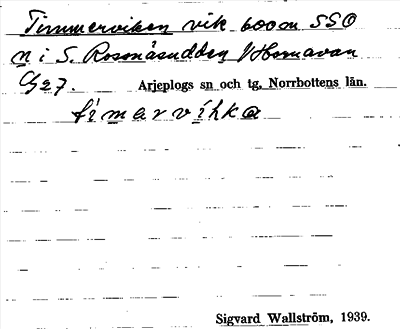 Timmerviken vik 600 m SSO
n i S. Rosenåsudden i Hornavan
G27. Arjeplogs sn och tg, Norrbottens län.
timarvihka
Sigvard Wallström, 1939.